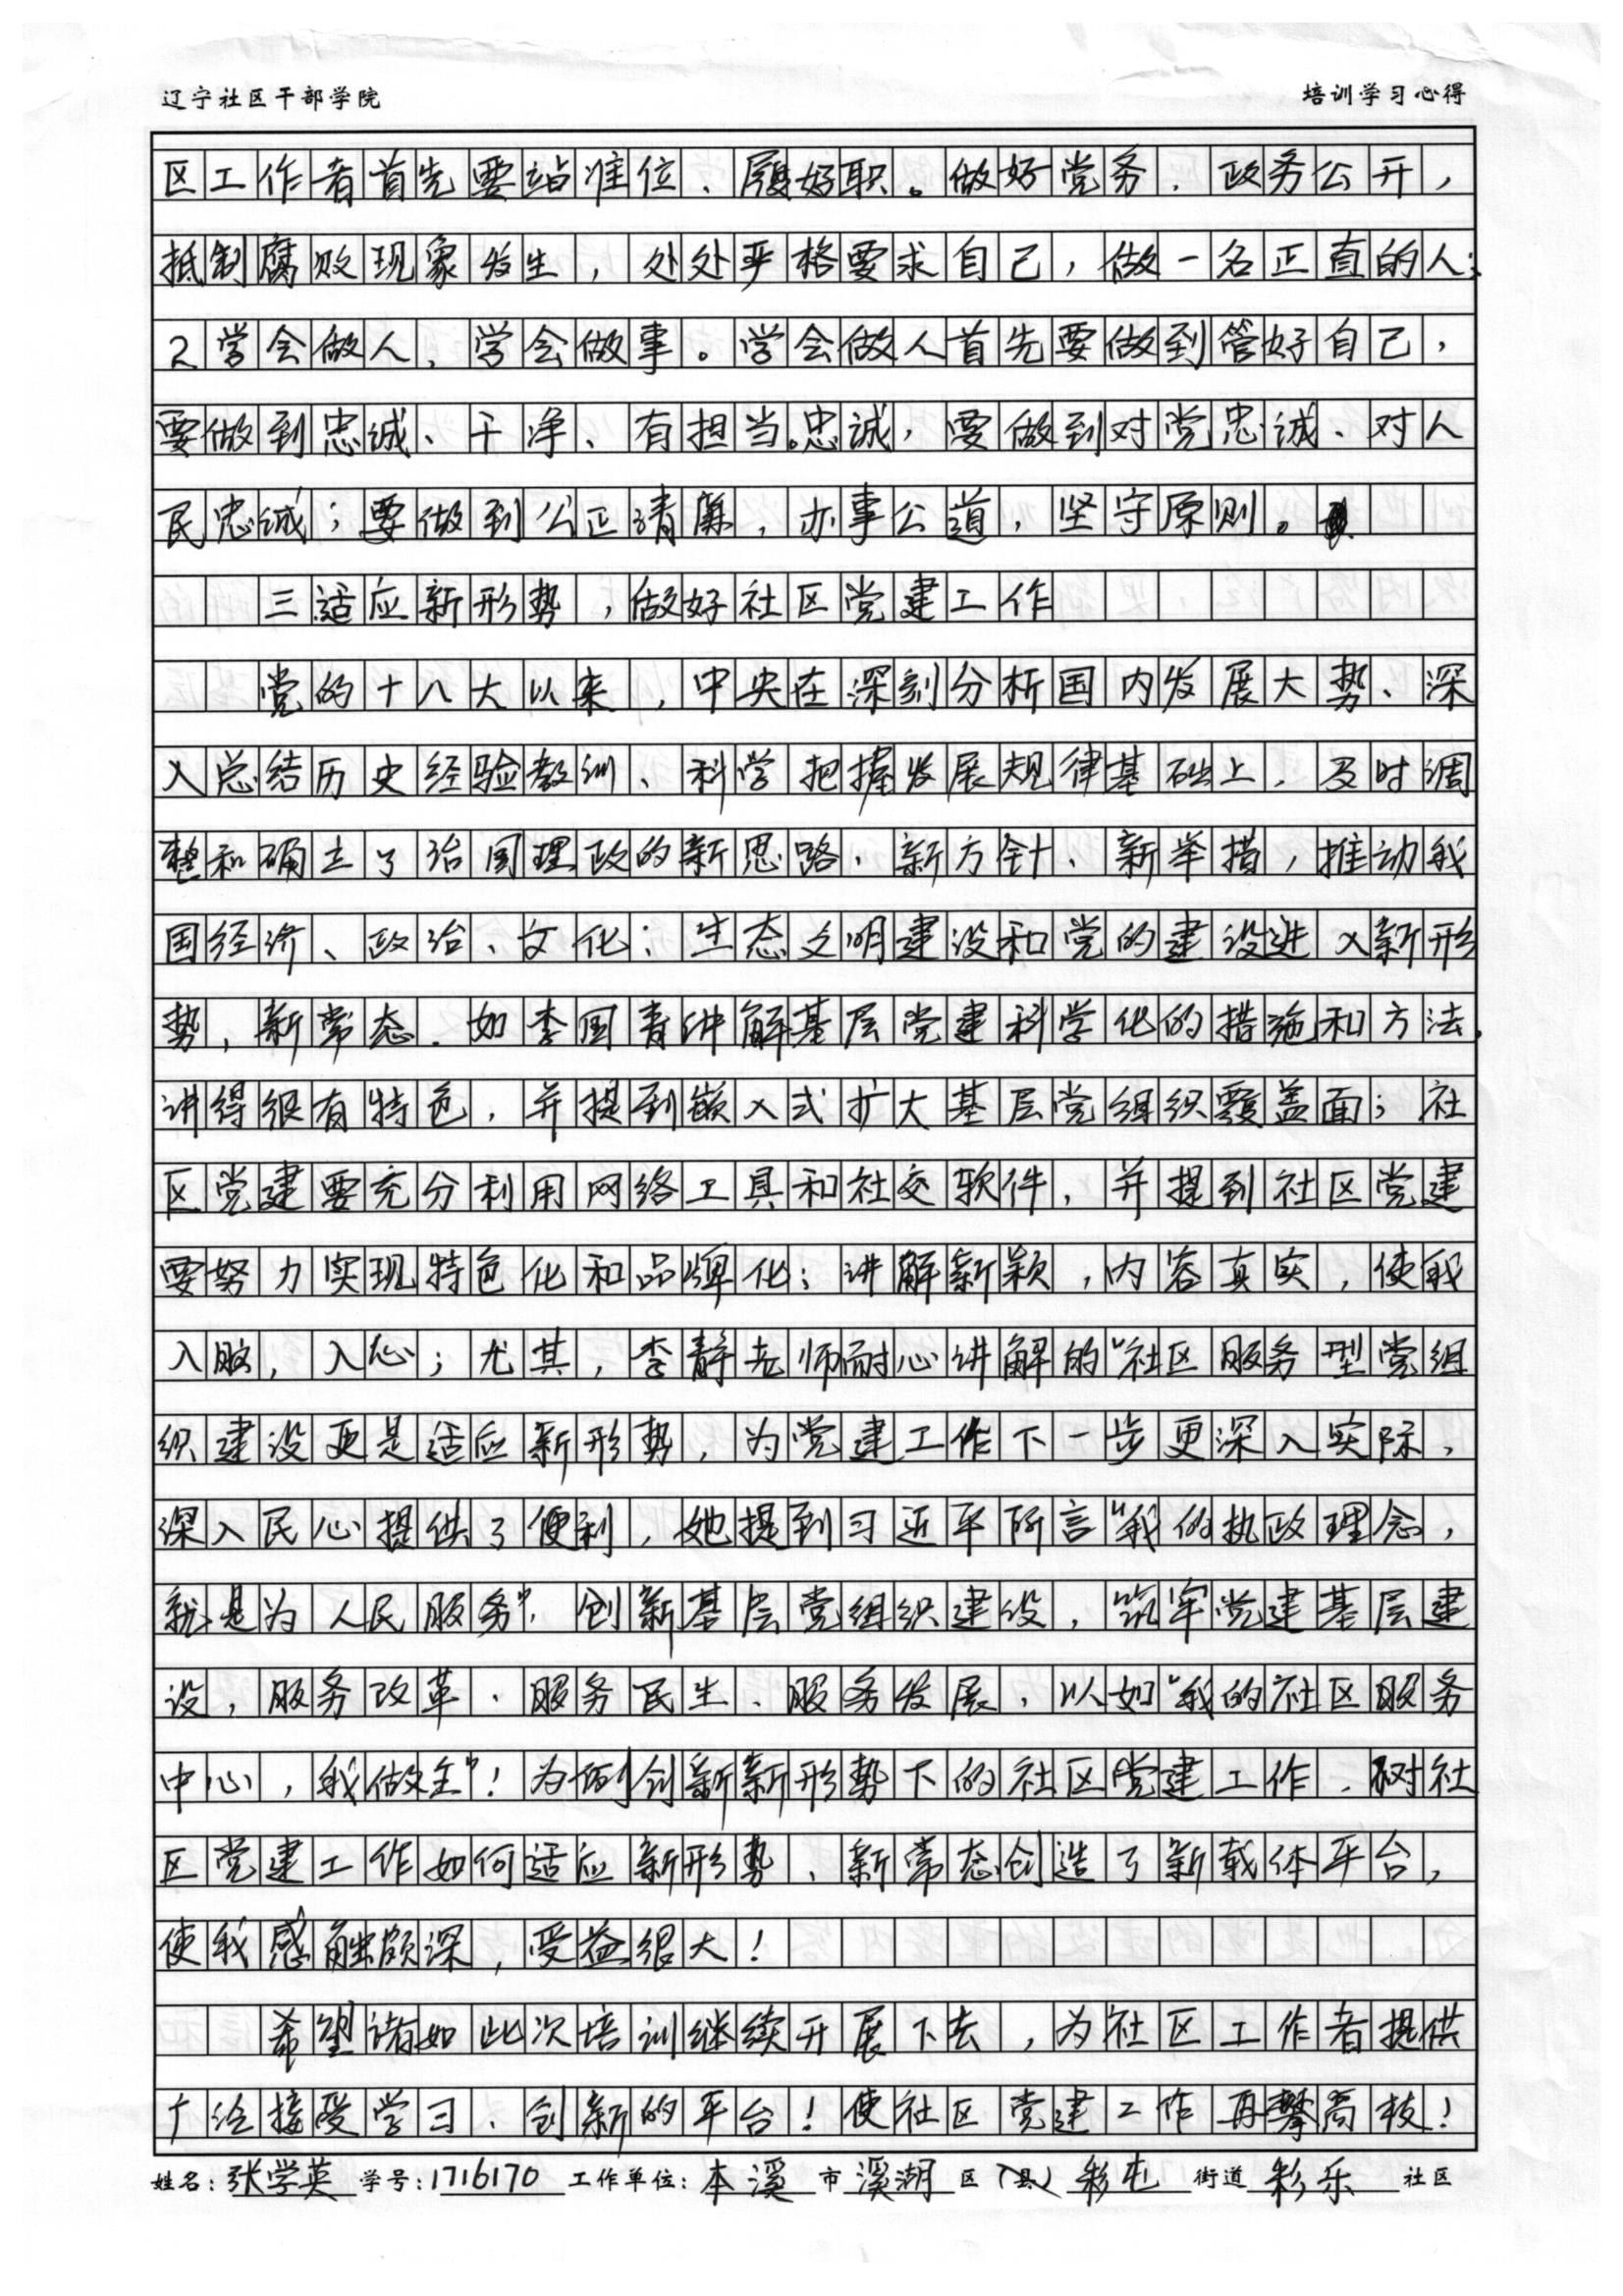 辽宁社区干部学院 培训学习心得
区工作者首先要站准位、履好职。做好党务、政务公开，
抵制腐败现象发生，处处严格要求自己，做一名正直的人；
2学会做人，学会做事。学会做人首先要做到管好自己，
要做到忠诚、干净、有担当。忠诚，要做到对党忠诚、对人
民忠诚；要做到公正清廉，办事公道，坚守原则。
三适应新形势，做好社区党建工作
党的十八大以来，中央在深刻分析国内发展大势、深
入总结历史经验教训、科学把握发展规律基础上，及时调
整和确立了治国理政的新思路、新方针、新举措，推动我
国经济、政治、文化；生态文明建设和党的建设进入新形
势，新常态．如李国青讲解基层党建科学化的措施和方法，
讲得很有特色，并提到嵌入式扩大基层党组织覆盖面；社
区党建要充分利用网络工具和社交软件，并提到社区党建
要努力实现特色化和品牌化；讲解新颖，内容真实，使我
入脑，入心；尤其，李静老师耐心讲解的“社区服务型党组
织建设更是适应新形势，为党建工作下一步更深入实际，
深入民心提供了便利，她提到习近平所言“我的执政理念，
就是为人民服务”，创新基层党组织建设，筑牢党建基层建
设，服务改革、服务民生、服务发展，以如“我的社区服务
中心，我做主”！为例创新新形势下的社区党建工作，对社
区党建工作如何适应新形势、新常态创造了新载体平台，
使我感触颇深，受益很大！
希望诸如此次培训继续开展下去，为社区工作者提供
广泛接受学习、创新的平台！使社区党建工作再攀高枝！
姓名：张学英 学号：1716170 工作单位：本溪 市 溪湖 区（县）彩屯 街道 彩乐 社区